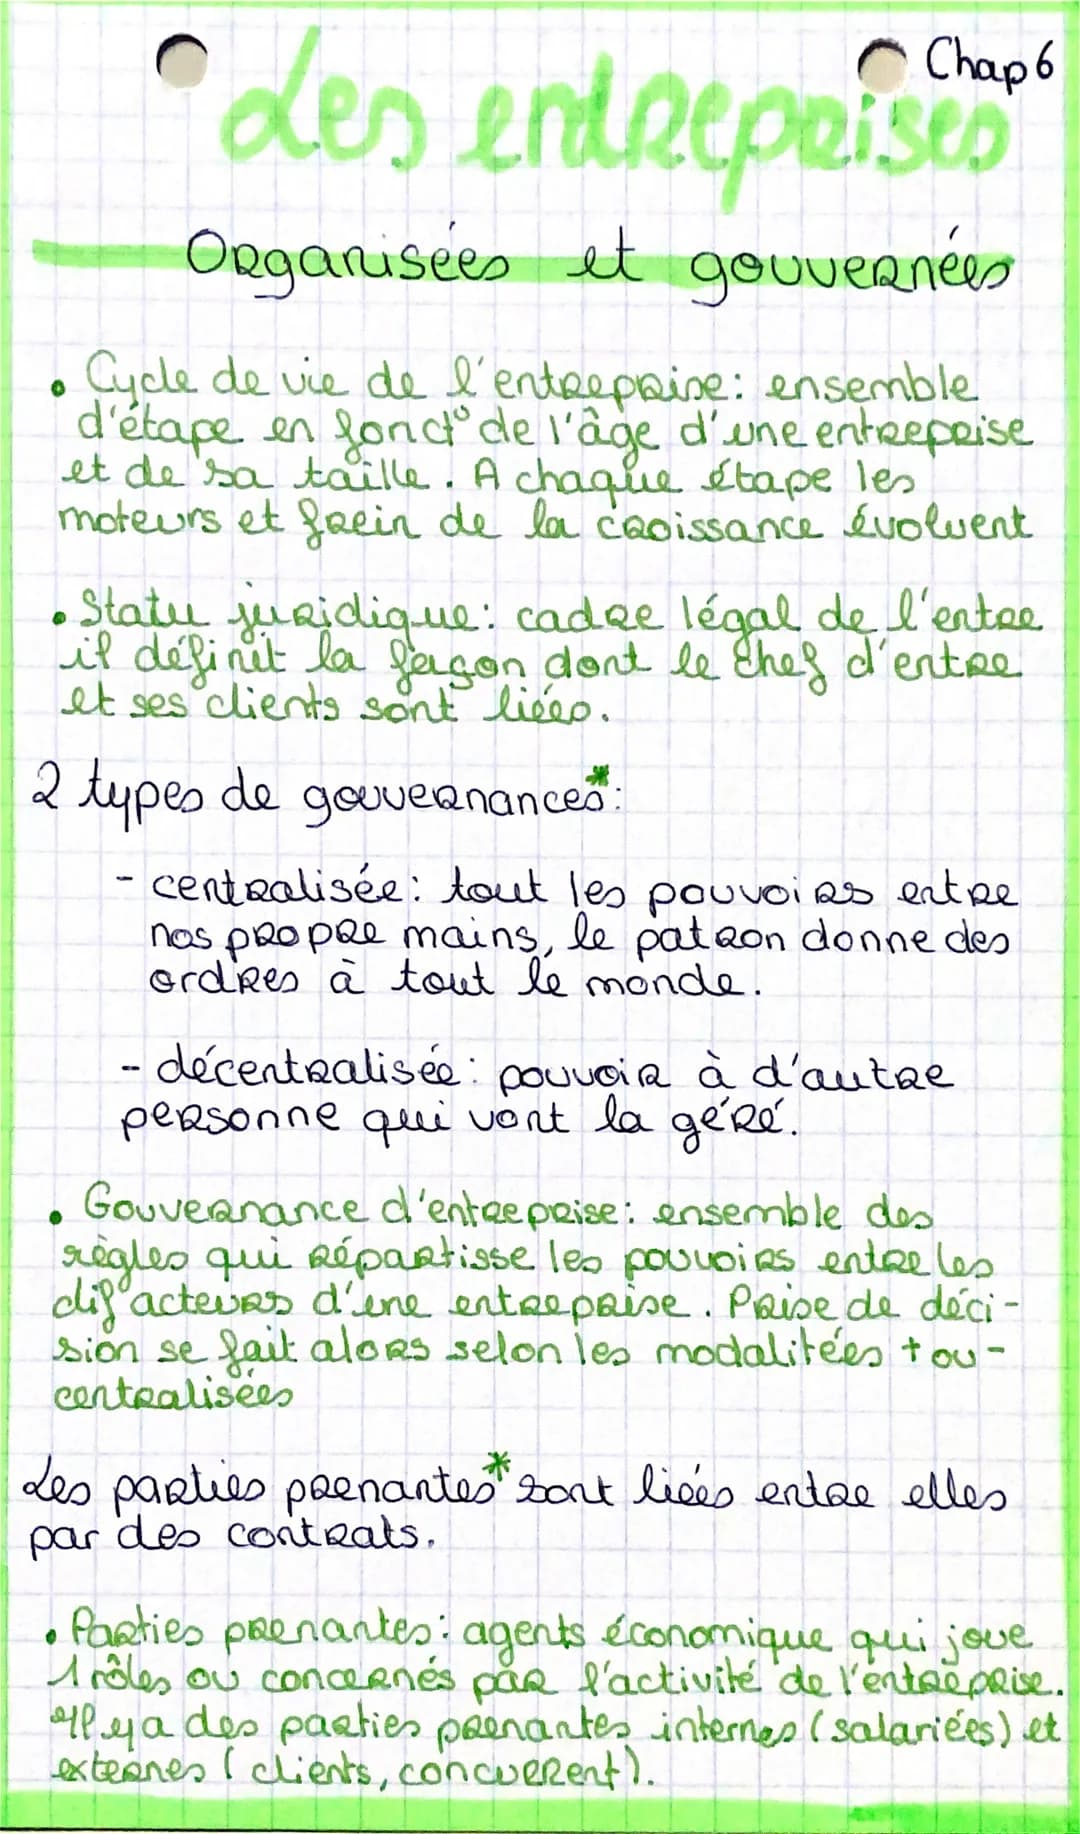 Chap 6
Les entreprises
Organisées et gouvernées
• Cycle de vie de l'entreprise: ensemble
d'étape en fonct° de l'âge d'une entreprise
et de sa taille. A chaque étape les
moteurs et frein de la croissance évoluent
• Statu juridique: cadre légal de l'entre
il définit la façon dont le chef d'entre
et ses clients sont liées.
2 types de gouvernances*:
- centralisée: tout les pouvoirs entre
nos propre mains, le patron donne des
ordres à tout le monde.
- décentralisée: pouvoir à d'autre
personne qui vont la géré.
• Gouvernance d'entreprise: ensemble des
règles qui répartisse les pouvoirs entre les
dif acteurs d'une entreprise. Prise de déci-
sion se fait alors selon les modalitées + ou -
centralisées
Les parties prenantes* sont liées entre elles
par des contrats.
• Parties prenantes: agents économique qui joue
1 rôles ou concernés par l'activité de l'entreprise.
Il y a des parties prenantes internes (salariées) et
externes (clients, concurent).